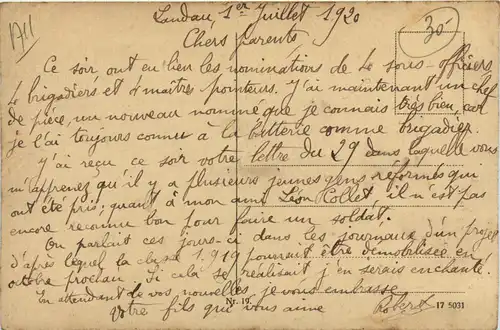 1711
30-
Landau, 1er Juillet 1920
Chers parents
Ce soir, ont eu lieu les nominations de 4 sous-officiers,
4 brigadiers et maîtres pointeurs. J'ai maintenant un chef
de pièce, un nouveau nommé que je connais très bien, car
je l'ai toujours connu à la batterie comme brigadier.
J'ai reçu ce soir votre lettre du 29 dans laquelle vous
m'apprenez qu'il y a plusieurs jeunes gens réformés qui
ont été pris; quant à mon ami Léon Collet il n'est pas
encore reconnu bon pour faire un soldat.
On parlait ces jours-ci dans les journaux d'un projet
d'après lequel la classe 1919 pourrait être démobilisée en
octobre prochain. Si cela se réalisait j'en serais enchanté.
En attendant de vos nouvelles, je vous embrasse
Votre fils qui vous aime Robert
Nr. 19.
17 5031